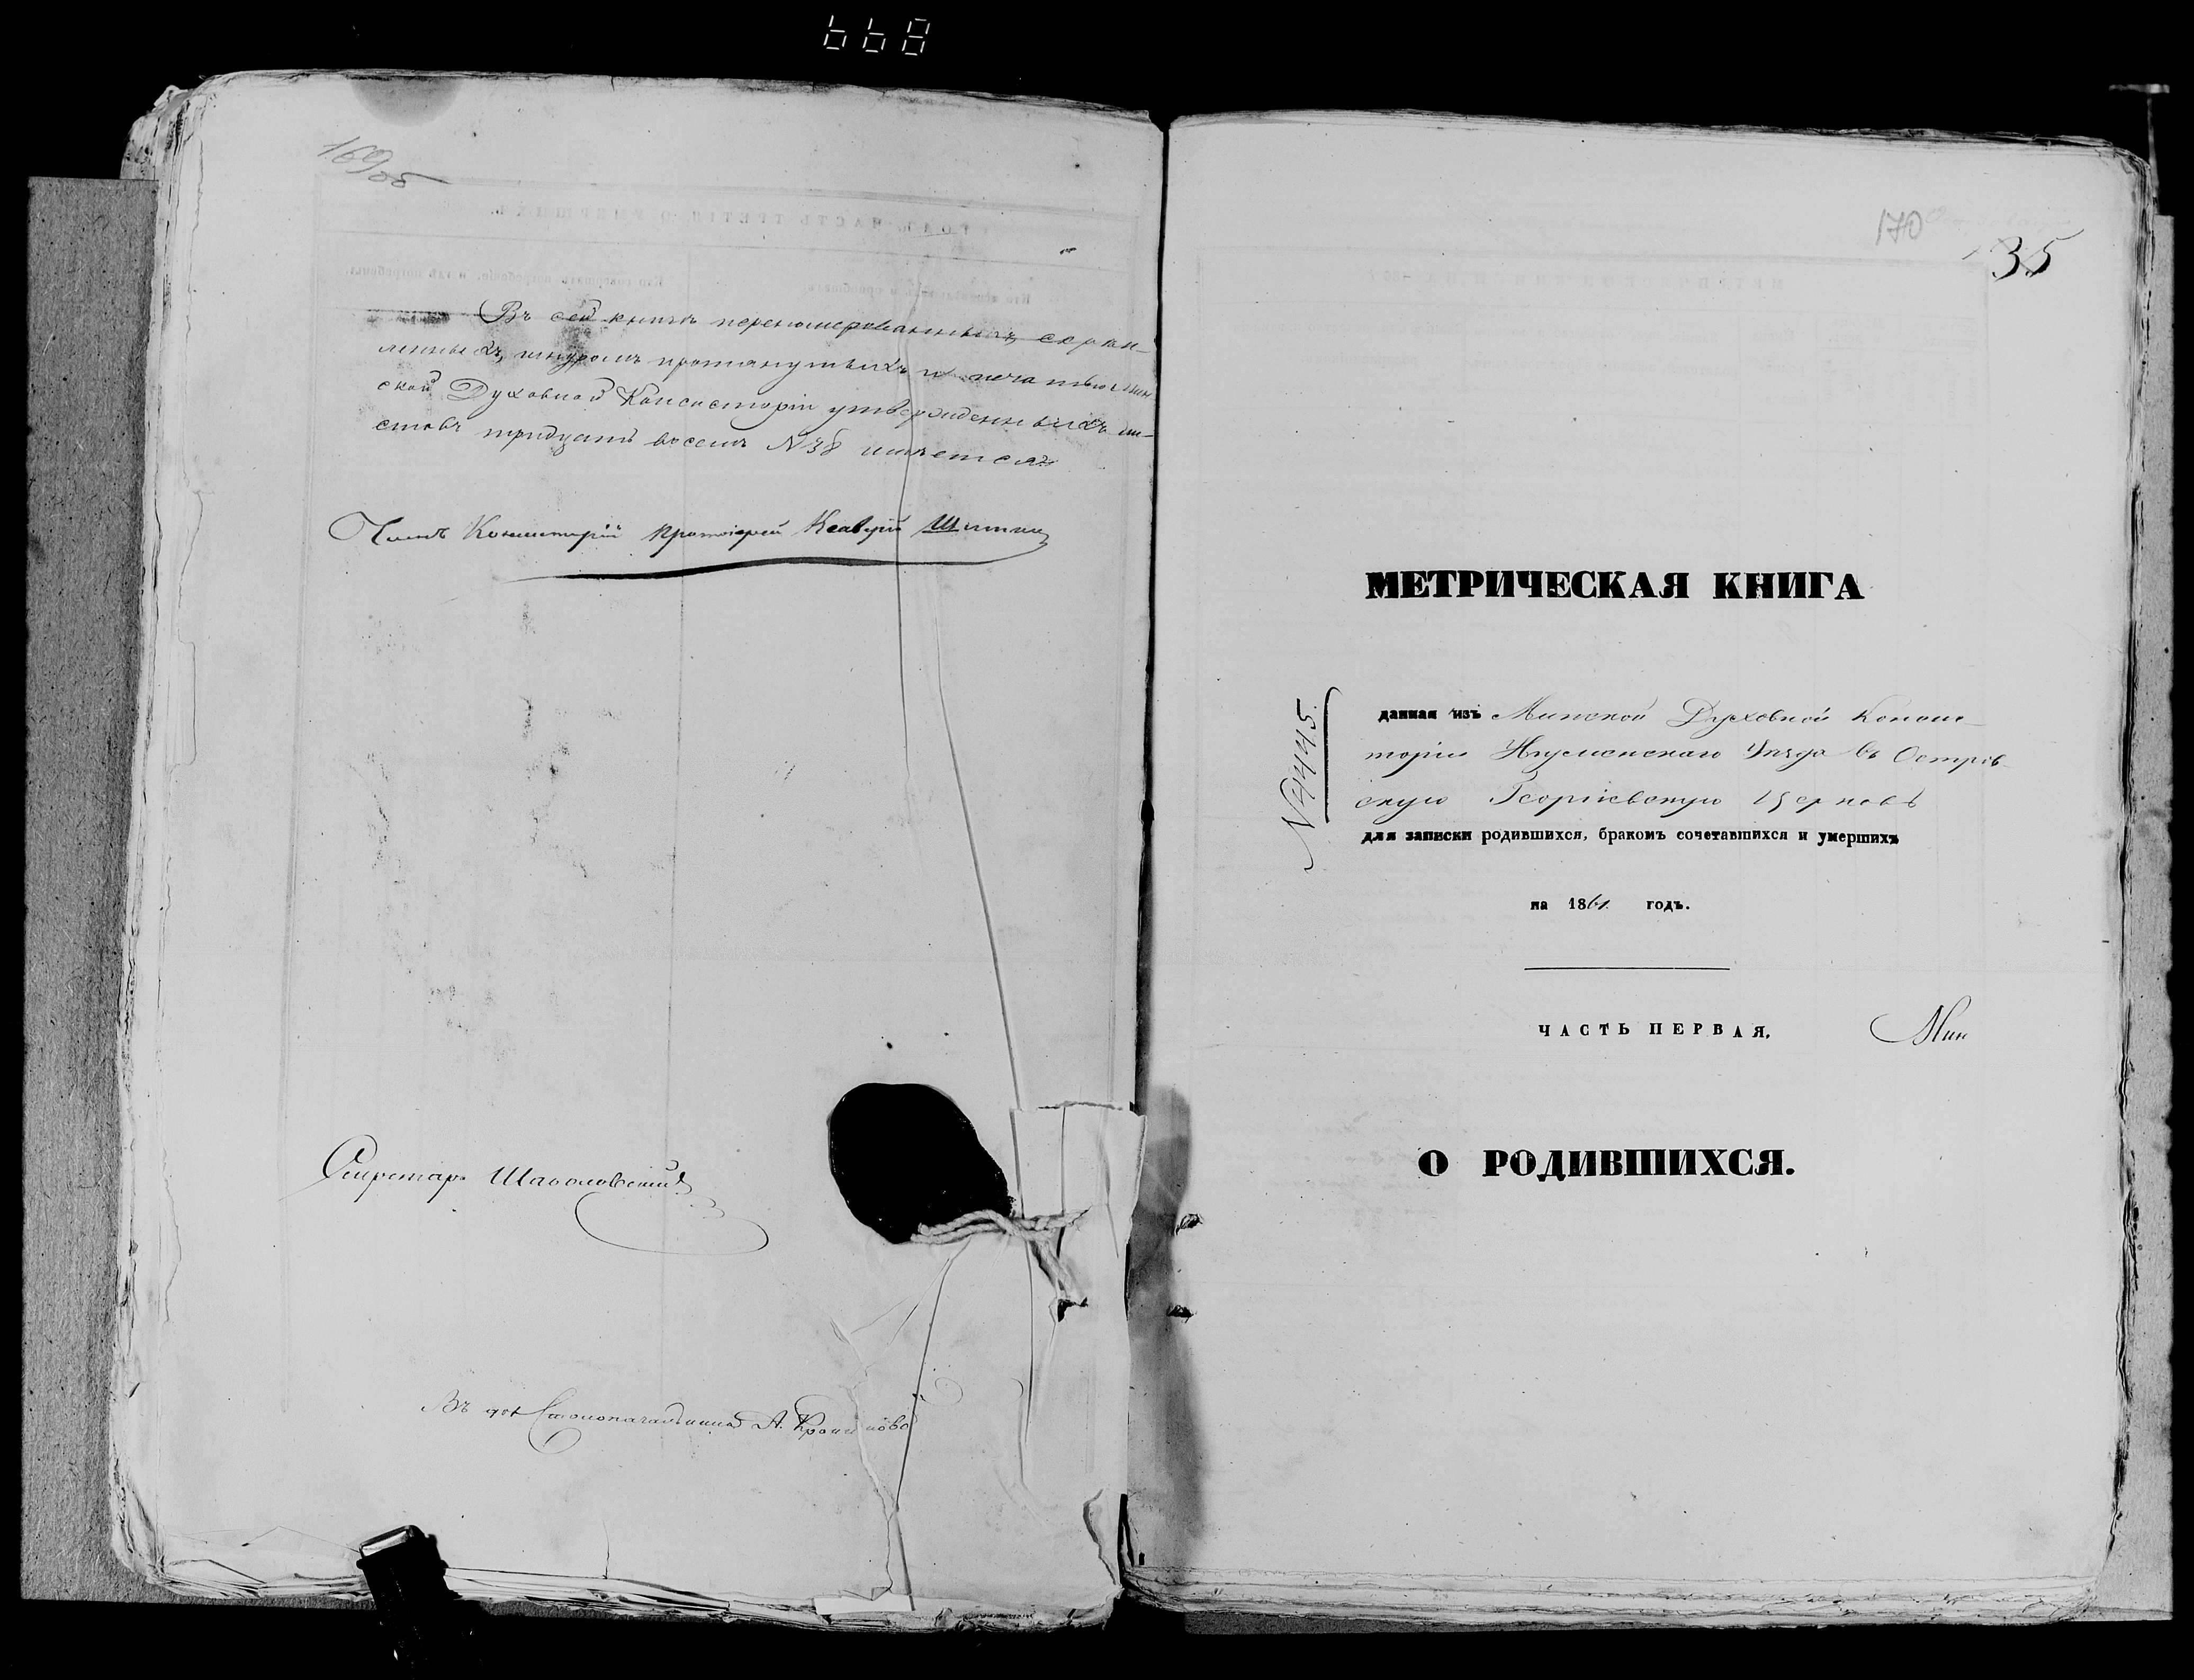 668
169об
Въ сей книгѣ перенумерованныхъ скрѣп-
ленныхъ, шнуромъ протянутыхъ и печатью Мин
ской Духовной Консисторіи утвержденныхъ ли-
стовъ тридцать восемь №38 имѣется
Членъ Консисторіи Протоіерей
Секретарь
Въ дол. Столоначальника А.
170
35
МЕТРИЧЕСКАЯ КНИГА
№4445.
данная изъ Минской Духовной Консис-
торіи Игуменскаго Уѣзда въ Остров-
скую Георгіевскую Церковь
для записки родившихся, бракомъ сочетавшихся и умершихъ
на 1861. годъ.
ЧАСТЬ ПЕРВАЯ.
Мин
О РОДИВШИХСЯ.